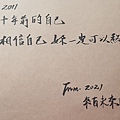 2011
十年前的自己
相信自己 妳一定可以
From. 2021
來